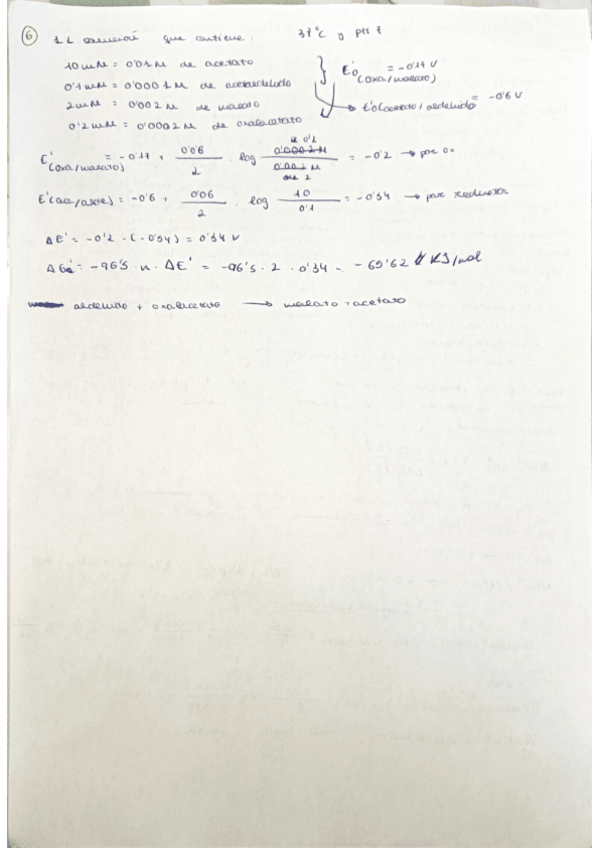 6 1 L solución que contiene: 37°C y pH 7
10 mM = 0'01 M de acetato
0'1 mM = 0'0001 M de acetaldehído
E'o(oxa/malato) = -0'17 V
2 mM = 0'002 M de malato
0'2 mM = 0'0002 M de oxalacetato
→ E'o(acetato/aldehído) = -0'6 V
E'(oxa/malato) = -0'17 + 0'06/2 · log 0'2/2 = -0'2 → par ox
E'(ac/) = -0'6 + 0'06/2 · log 10/0'1 = -0'54 → par reductor
ΔE' = -0'2 - (-0'54) = 0'34 V
ΔG' = -96'5 · n · ΔE' = -96'5 · 2 · 0'34 = -65'62 KJ/mol
aldehído + oxalacetato → malato + acetato